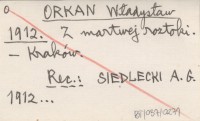 0
ORKAN Władysław
1912. Z martwej roztoki.
– Kraków.
Rec.: SIEDLECKI A. G.
1912...